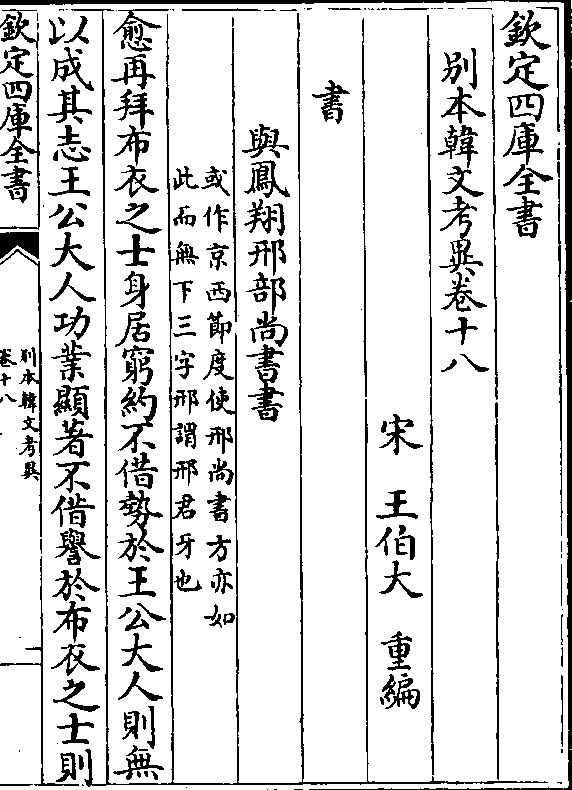 欽定四庫全書
别本韓文考異卷十八
宋 王伯大 重編
書
與鳳翔邢部尚書書
或作京西節度使邢尚書方亦如
此而無下三字邢謂邢君牙也
愈再拜布衣之士身居窮約不借勢於王公大人則無
以成其志王公大人功業顯著不借譽於布衣之士則
欽定四庫全書
别本韓文考異
卷十八
一